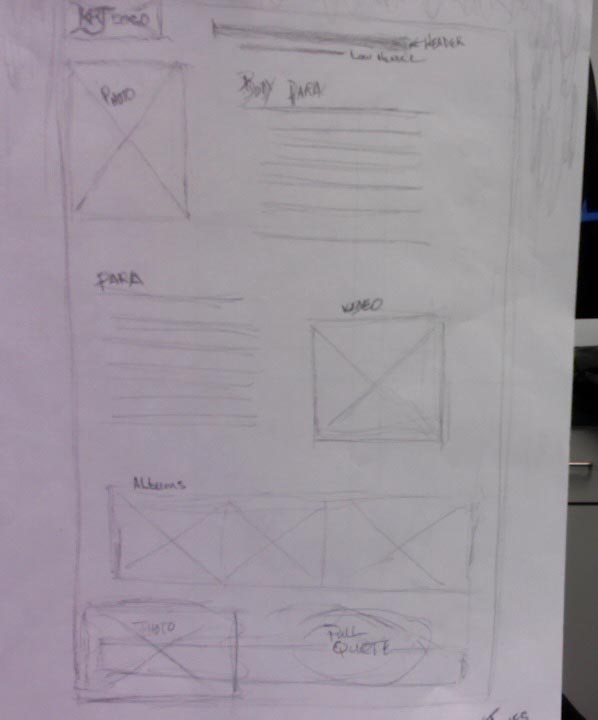 HEADER
LOW HEADER
PHOTO
BODY PARA
PARA
VIDEO
ALBUMS
PHOTO
PULL
QUOTE